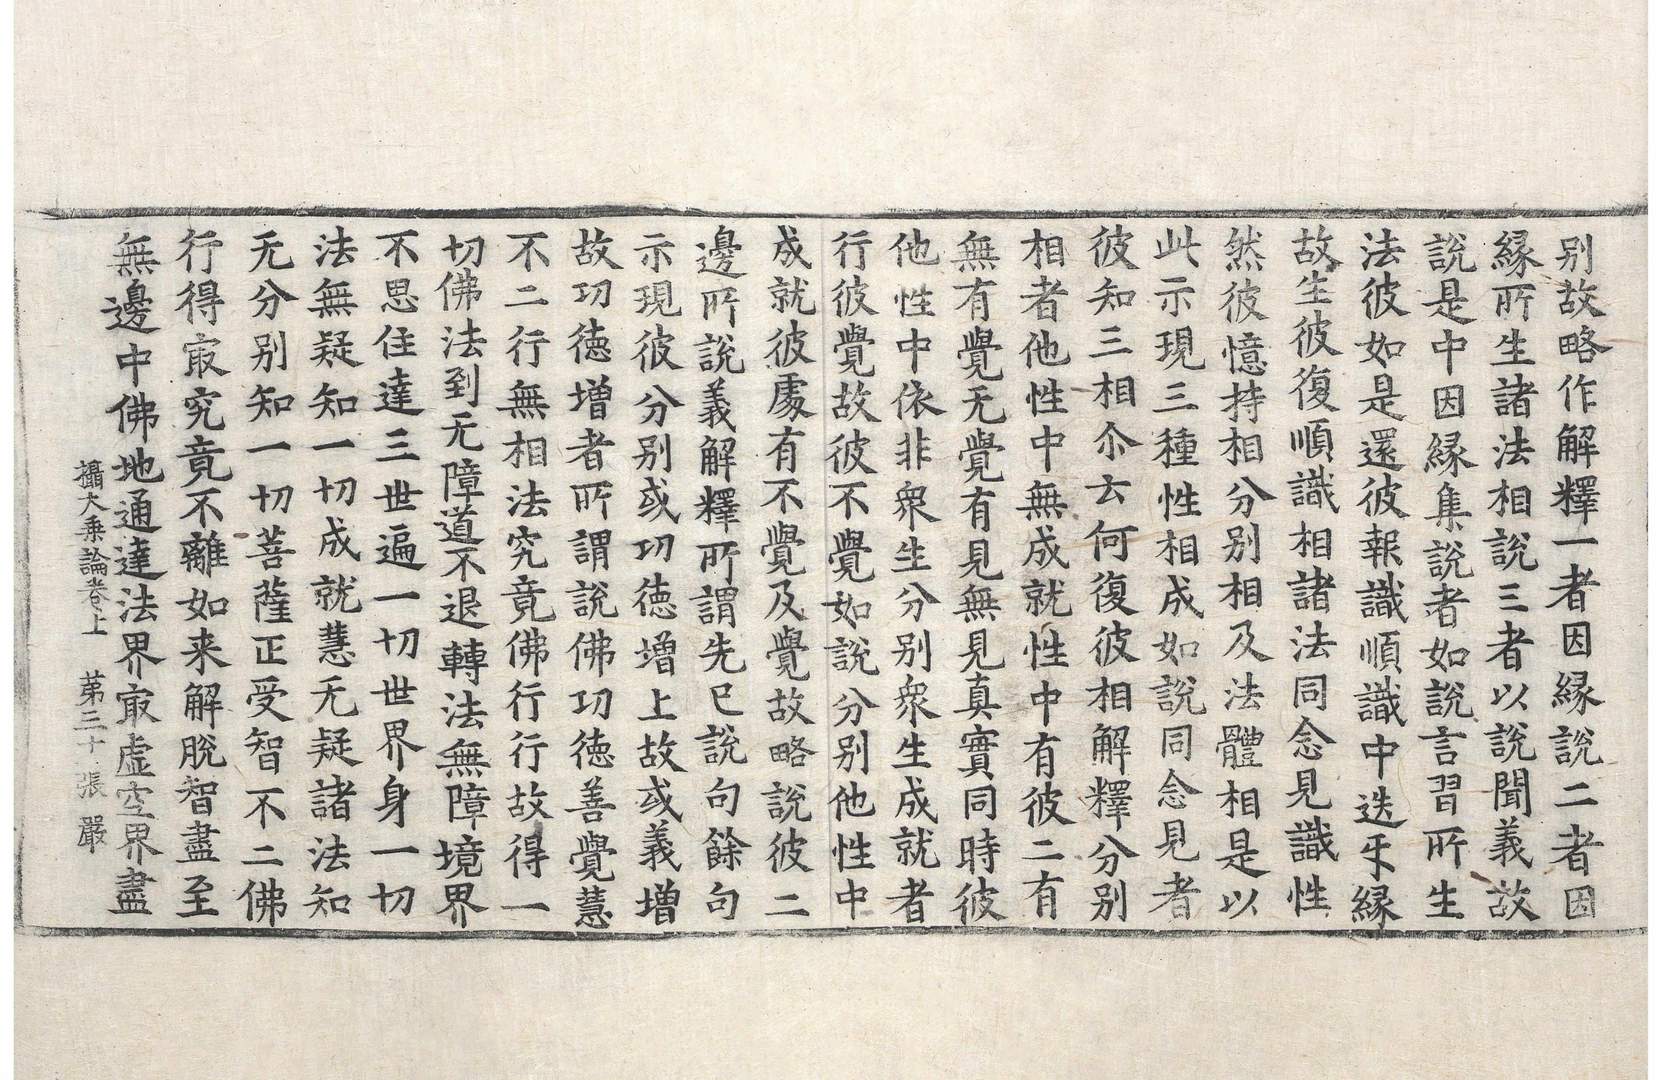 别故略作解釋一者因縁說二者因
縁所生諸法相說三者以說聞義故
說是中因縁集說者如說言習所生
法彼如是還彼報識順識中迭牙縁
故生彼復順識相諸法同念見識性
然彼憶持相分别相及法體相是以
此示現三種性相成如說同念見者
彼知三相尒云何復彼相解釋分别
相者他性中無成就性中有彼二有
無有覺无覺有見無見真實同時彼
他性中依非衆生分别衆生成就者
行彼覺故彼不覺如說分别他性中
成就彼處有不覺及覺故略說彼二
邊所說義解釋所謂先已說句餘句
示現彼分别或功徳增上故或義增
故功徳增者所謂說佛功徳善覺慧
不二行無相法究竟佛行行故得一
切佛法到无障道不退轉法無障境界
不思住達三世遍一切世界身一切
法無疑知一切成就慧无疑諸法知
无分别知一切菩薩正受智不二佛
行得㝡究竟不離如来解脫智盡至
無邊中佛地通達法界㝡虚空界盡
攝大乗論卷上　苐三十張　嚴